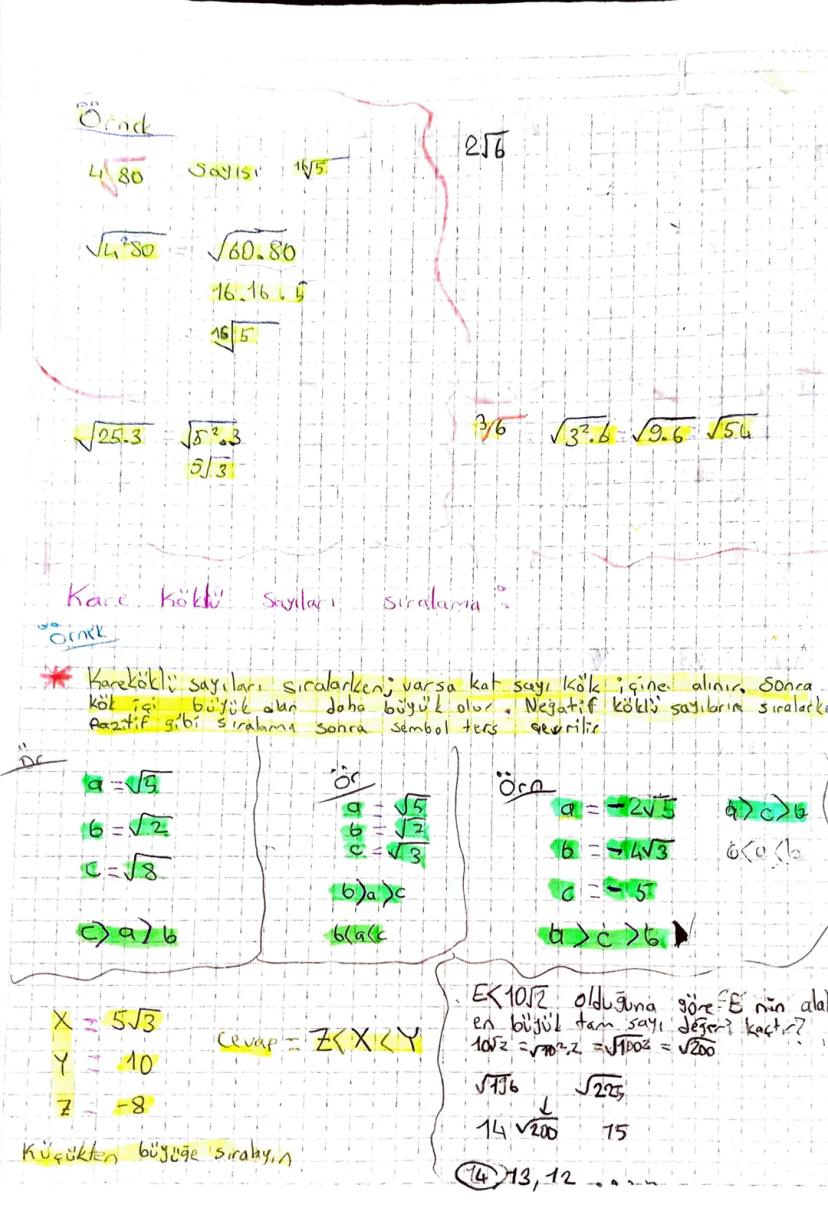 Örnek
4√80 sayısı 16√5
2√6
√4²80 = √60.80
16.16.5
16√5
√25.3 = √5².3
5√3
3√6 √3².6 √9.6 √54
Kare köklü sayıları sıralama:
Örnek
* Kareköklü sayıları sıralarken; varsa kat sayı kök içine alınır. Sonra
kök içi büyük olan daha büyük olur. Negatif köklü sayıların sıralarke
pozitif gibi sıralama sonra sembol ters çevrilir
Ör
a = √5
b = √2
c = √8
c > a > b
Ör
a = √5
b = √7
c = √3
b > a > c
b < a < c
Örn
a = -2√5
b = -4√3
c = -5
a > c > b
a > c > b
X = 5√3
Y = 10
Z = -8
Cevap = Z < X < Y
Küçükten büyüğe sıralayın.
E < 10√2 olduğuna göre "E" nin alab
en büyük tam sayı değeri kaçtır?
10√2 = √10².2 = √100.2 = √200
√196 √225
↓
14 √200 15
14, 13, 12 .....